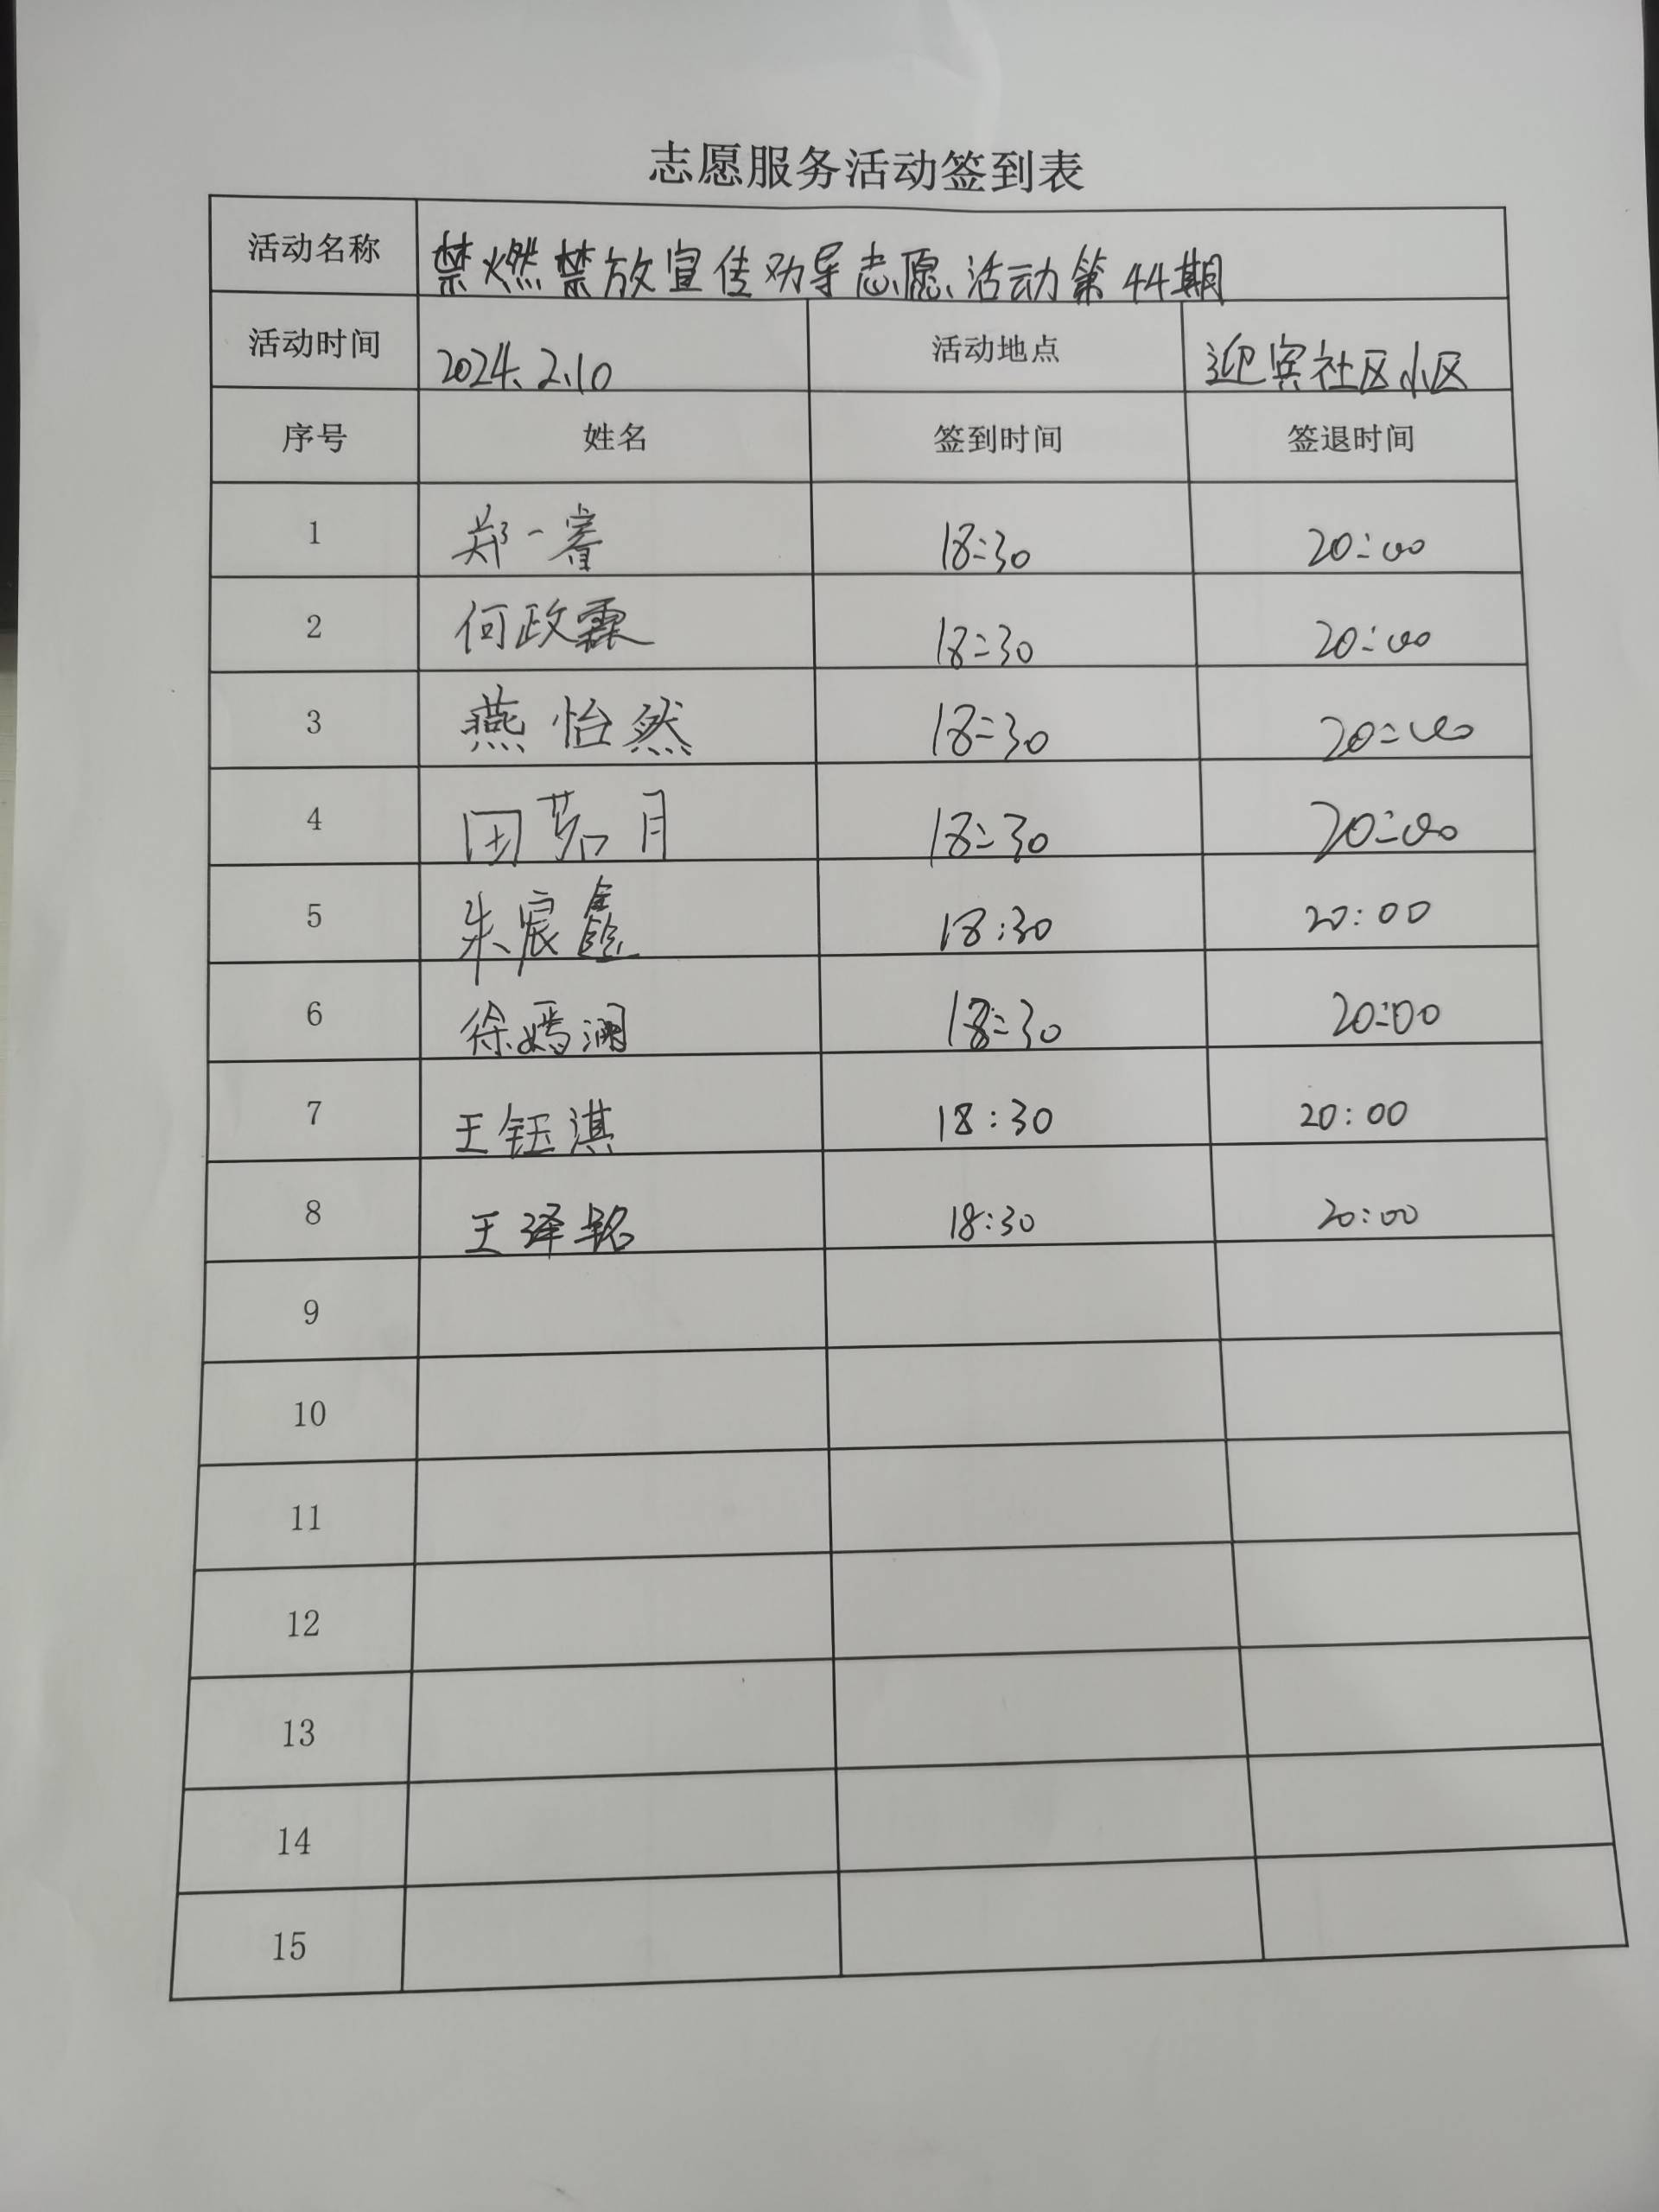 志愿服务活动签到表
活动名称 禁燃禁放宣传劝导志愿活动第44期
活动时间 2024.2.10 活动地点 迎宾社区小区
序号 姓名 签到时间 签退时间
1 郑一睿 18:30 20:00
2 何政霖 18:30 20:00
3 燕怡然 18:30 20:00
4 田茗月 18:30 20:00
5 朱宸鑫 18:30 20:00
6 徐嫣澜 18:30 20:00
7 王钰淇 18:30 20:00
8 王泽铭 18:30 20:00
9
10
11
12
13
14
15